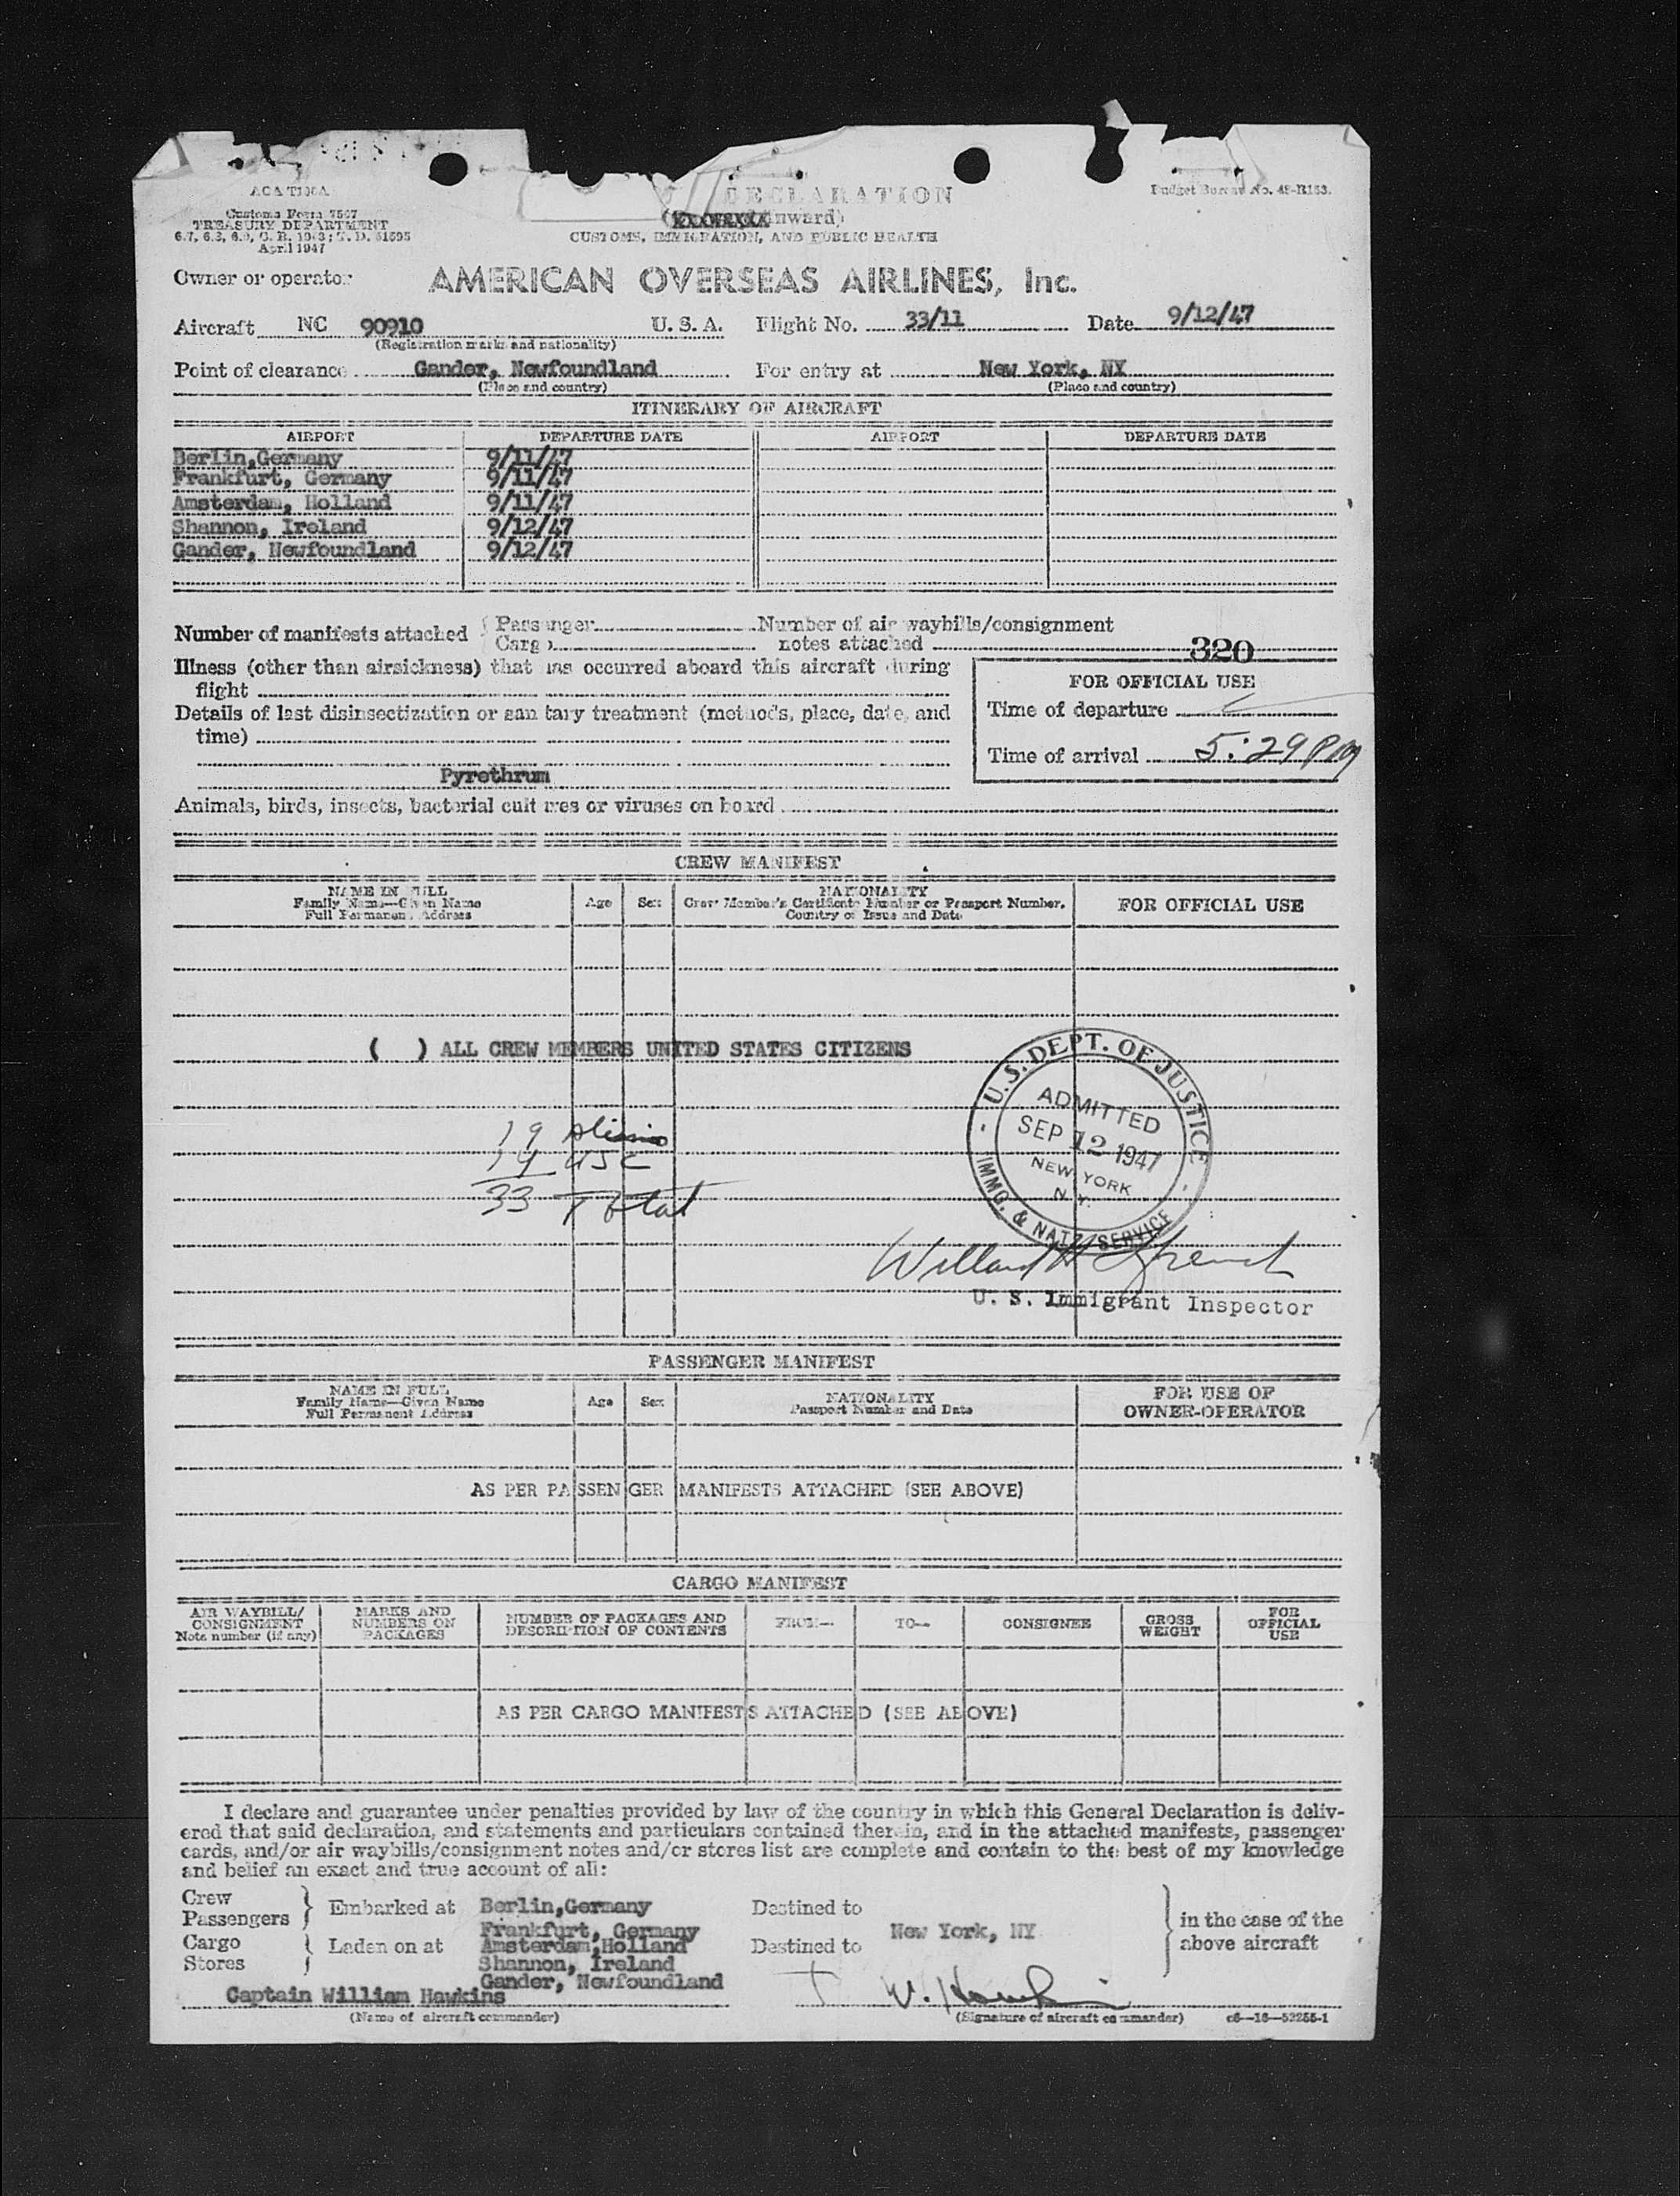 DECLARATION
Budget Bureau No. 48-R153.
Customs Form 7507
TREASURY DEPARTMENT
April 1947
(XXXXXXXX Inward)
CUSTOMS, IMMIGRATION, AND PUBLIC HEALTH
Owner or operator AMERICAN OVERSEAS AIRLINES, Inc.
Aircraft NC 90910 U. S. A. Flight No. 33/11 Date 9/12/47
(Registration marks and nationality)
Point of clearance Gander, Newfoundland For entry at New York, NY
(Place and country) (Place and country)
ITINERARY OF AIRCRAFT
AIRPORT DEPARTURE DATE AIRPORT DEPARTURE DATE
Berlin,Germany 9/11/47
Frankfurt, Germany 9/11/47
Amsterdam, Holland 9/11/47
Shannon, Ireland 9/12/47
Gander, Newfoundland 9/12/47
Number of manifests attached { Passenger Number of air waybills/consignment
Cargo notes attached 320
Illness (other than airsickness) that has occurred aboard this aircraft during
flight
Details of last disinsectization or sanitary treatment (methods, place, date, and
time)
Pyrethrum
FOR OFFICIAL USE
Time of departure
Time of arrival 5:29 PM
Animals, birds, insects, bacterial cultures or viruses on board
CREW MANIFEST
NAME IN FULL
Family Name—Given Name
Full Permanent Address
Age Sex
NATIONALITY
Crew Member's Certificate Number or Passport Number,
Country of Issue and Date
FOR OFFICIAL USE
( ) ALL CREW MEMBERS UNITED STATES CITIZENS
19 Aliens
14 USC
33 Total
U.S. DEPT. OF JUSTICE
ADMITTED
SEP 12 1947
NEW YORK
N.Y.
IMMG. & NATZ. SERVICE
Willard H
U. S. Immigrant Inspector
PASSENGER MANIFEST
NAME IN FULL
Family Name—Given Name
Full Permanent Address
Age Sex
NATIONALITY
Passport Number and Date
FOR USE OF
OWNER-OPERATOR
AS PER PASSENGER MANIFESTS ATTACHED (SEE ABOVE)
CARGO MANIFEST
AIR WAYBILL/
CONSIGNMENT
Note number (if any)
MARKS AND
NUMBERS ON
PACKAGES
NUMBER OF PACKAGES AND
DESCRIPTION OF CONTENTS
FROM—
TO—
CONSIGNEE
GROSS
WEIGHT
FOR
OFFICIAL
USE
AS PER CARGO MANIFESTS ATTACHED (SEE ABOVE)
I declare and guarantee under penalties provided by law of the country in which this General Declaration is deliv-
ered that said declaration, and statements and particulars contained therein, and in the attached manifests, passenger
cards, and/or air waybills/consignment notes and/or stores list are complete and contain to the best of my knowledge
and belief an exact and true account of all:
Crew
Passengers } Embarked at Berlin,Germany Destined to
Frankfurt, Germany New York, NY
Cargo
Stores } Laden on at Amsterdam,Holland Destined to
Shannon, Ireland
Gander, Newfoundland
} in the case of the
above aircraft
Captain William Hawkins W. Hawkins
(Name of aircraft commander) (Signature of aircraft commander) c6—16—52255-1